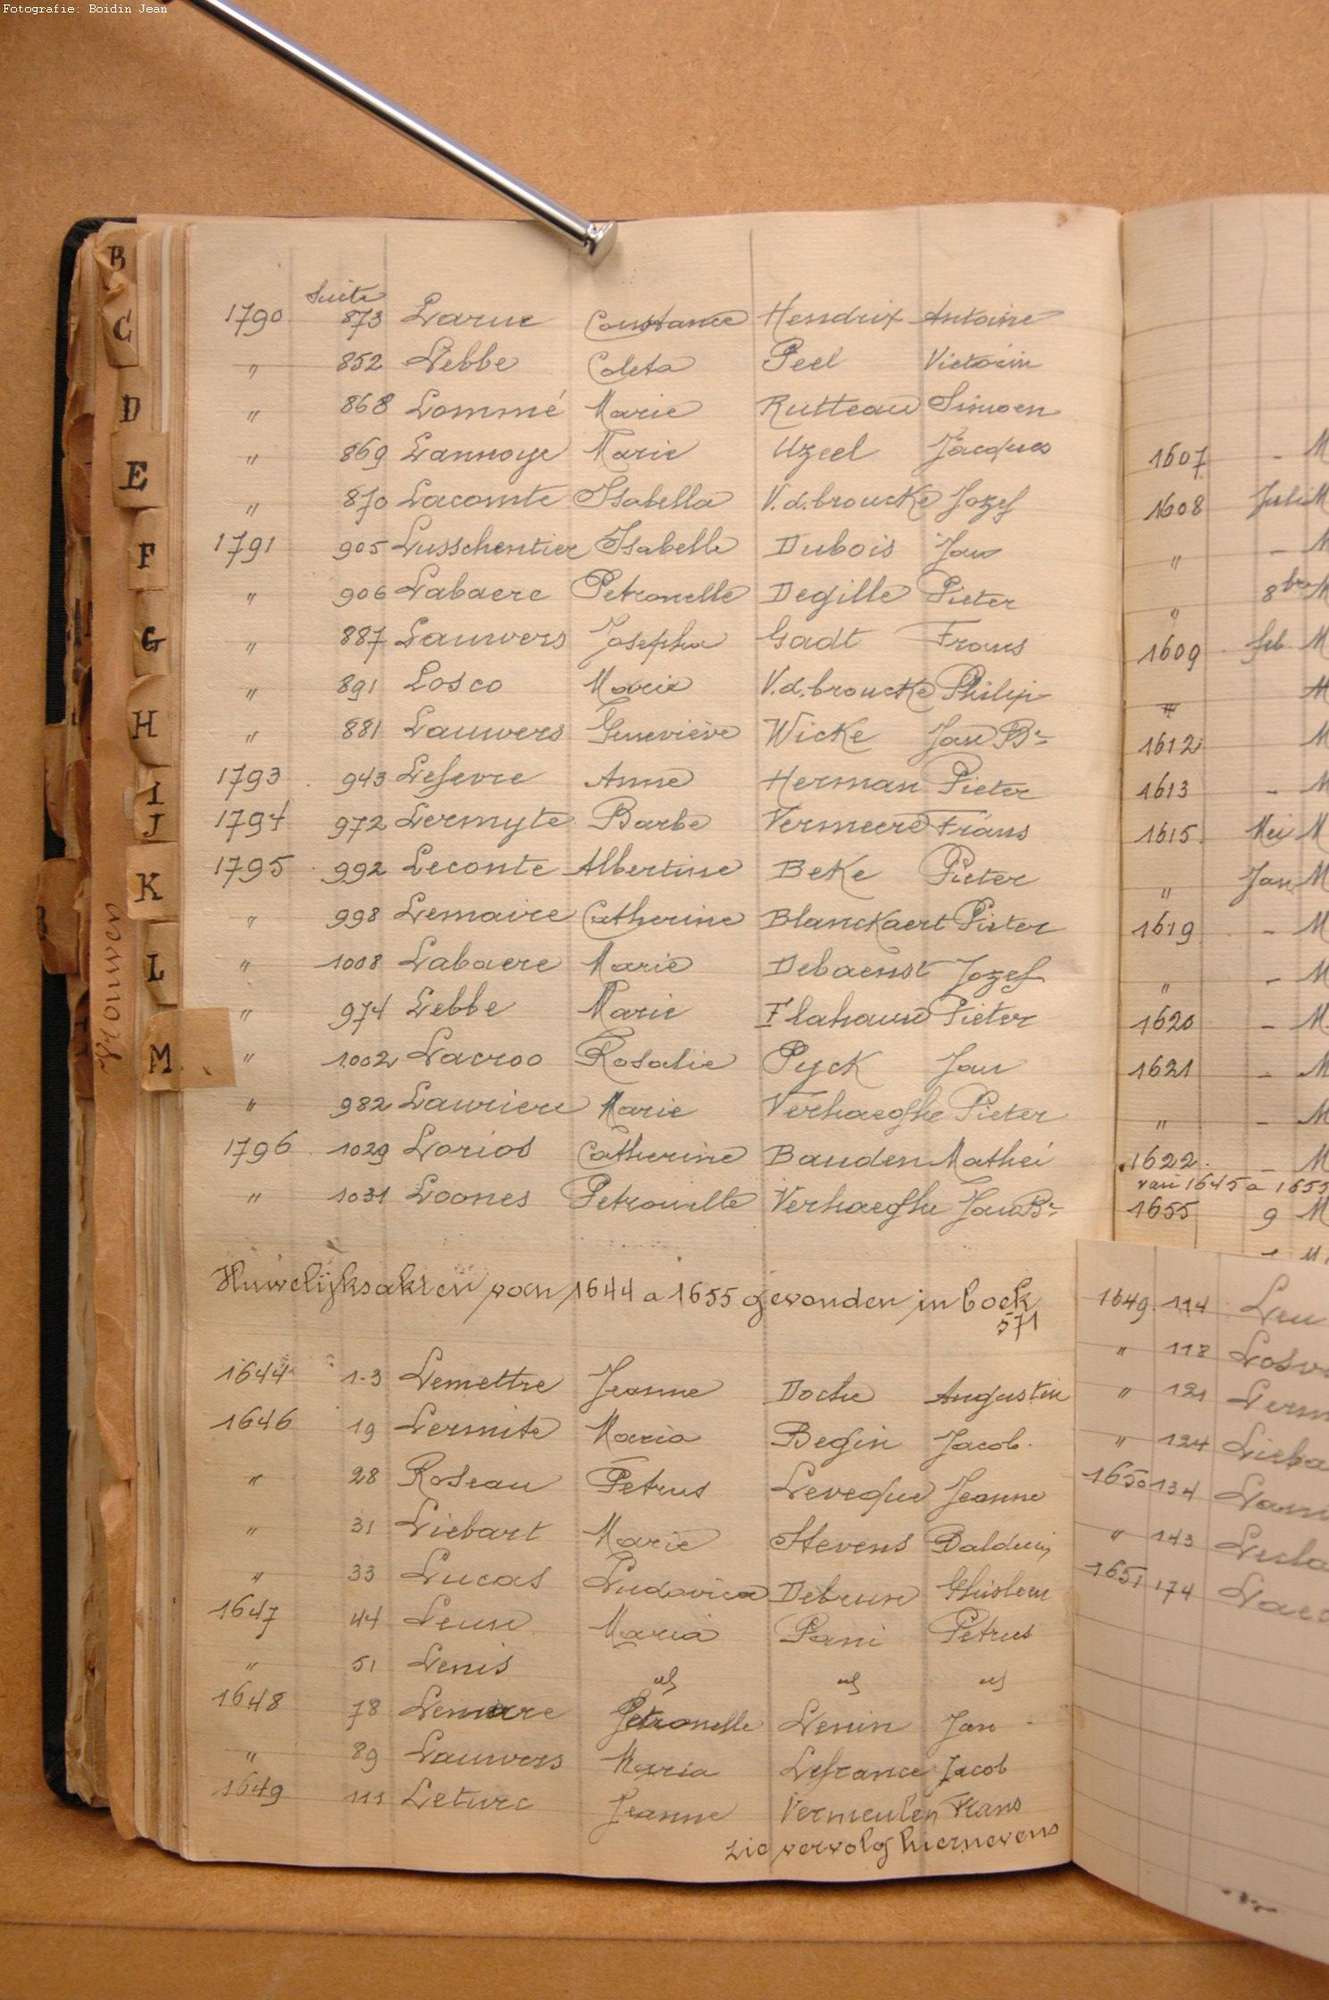 Fotografie: Boidin Jean
B
C
D
E
F
G
H
I
J
K
L
M
Vrouwen
Suite
1790 873 Larue Constance Hendrix Antoine
" 852 Lebbe Coleta Peel Victorin
" 868 Lommé Marie Rutteau Simoen
" 869 Lannoye Marie Uzeel Jacques
" 870 Lacomte Isabella V.d.broucke Jozef
1791 905 Lusschentier Isabelle Dubois Jan
" 906 Labaere Petronelle Degille Pieter
" 887 Lauwers Josepha Gadt Frans
" 891 Losco Marie V.d.broucke Philip
" 881 Lauwers Geneviève Wicke Jan Bte
1793 943 Lefevre Anne Herman Pieter
1794 972 Lermyte Barbe Vermeere Frans
1795 992 Leconte Albertine Beke Pieter
" 998 Lemaire Catherine Blanckaert Pieter
" 1008 Labaere Marie Debaenst Jozef
" 974 Lebbe Marie Flahauw Pieter
" 1002 Lacroo Rosalie Pyck Jan
" 982 Lauriere Marie Verhaeghe Pieter
1796 1029 Lorios Catherine Bauden Mathei
" 1031 Loones Petronille Verhaeghe Jan Bte
Huwelijksakten van 1644 a 1655 gevonden in boek
571
1644 1-3 Lemettre Jeanne Doche Augustin
1646 19 Lermite Maria Begin Jacob.
" 28 Roseau Petrus Leveque Jeanne
" 31 Liebart Marie Stevens Balduin
" 33 Lucas Ludovica Debrun Ghisleen
1647 44 Leune Maria Pani Petrus
" 51 Lenis
1648 78 Lemaire Petronelle Lenin Jan
" 89 Lauwers Maria Lefrance Jacob
1649 111 Leturc Jeanne Vermeulen Frans
zie vervolg hiernevens
1607 - M
1608 Juli M
" - M
" 8bre M
1609 feb M
" M
1612 M
1613 - M
1615 Mei M
" Jan M
1619 - M
" - M
1620 - M
1621 - M
" - M
1622 - M
van 1645 a 1655
1655 9 M
1649 114 Leu
" 118
" 121 Lerm
" 124 Lieba
1650 134
" 143
1651 174